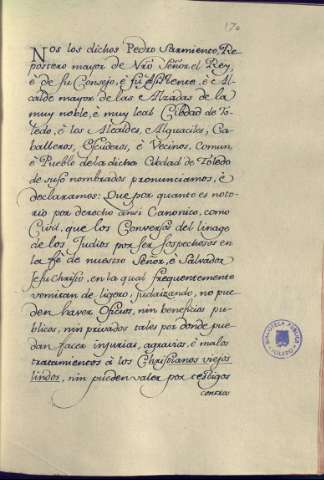 170
Nos los dichos Pedro Sarmiento, Re-
postero mayor de Nro Señor, el Rey,
è de su Consejo, è su Assistente, è Al-
calde mayor de las Alzadas de la
muy noble, è muy leal Cibdad de To-
ledo, è los Alcaldes, Alguaciles, Ca-
balleros, Escuderos, è Vecinos, Comun,
è Pueblo de la dicha Cibdad de Toledo
de suso nombrados pronunciamos, è
declaramos: Que por quanto es noto-
rio por derecho ansi Canonico, como
Civil, que los Conversos del linage
de los Judios por ser sospechosos en
la fè de nuestro Señor, è Salvador
Jesu Christo, en la qual frequentemente
vomitan de ligero, judaizando, no pue-
den haver Oficios, nin beneficios pu-
blicos, nin privados tales por donde pue-
dan facer injurias, agravios, è malos
tratamientos à los Christianos viejos
lindos, nin pueden valer por testigos
contra
BIBLIOTECA PUBLICA
TOLEDO